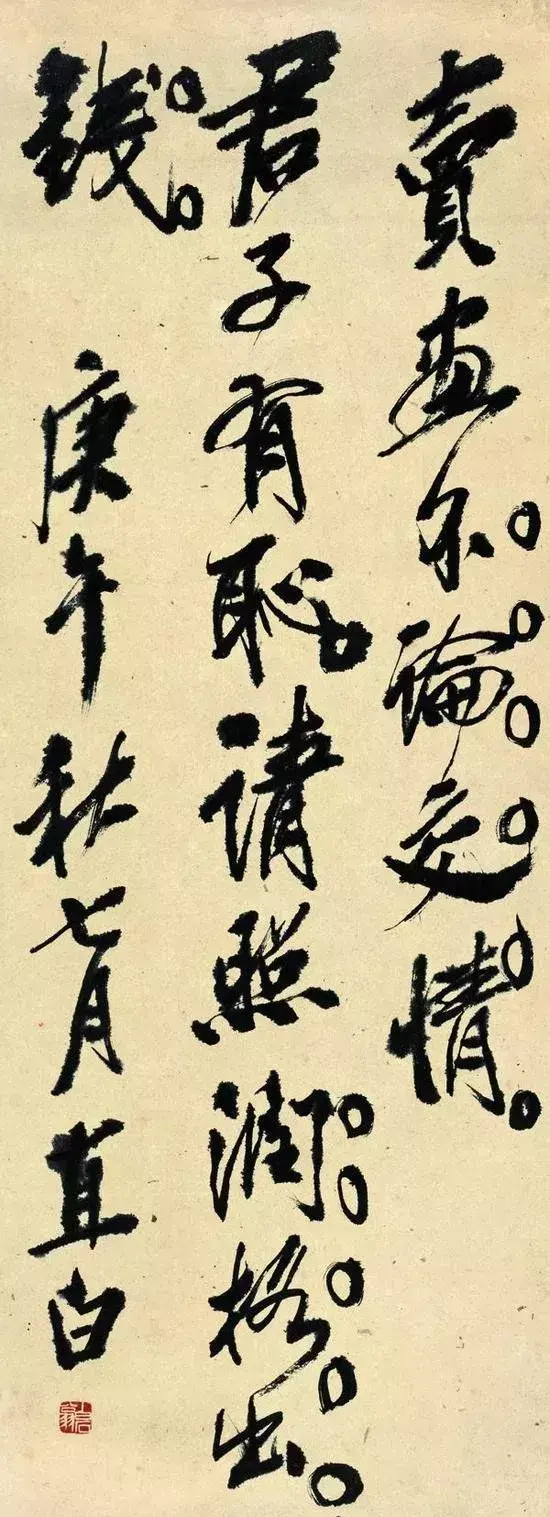 賣畫不論交情。
君子有恥。請照潤格出
錢。庚午秋七月直白